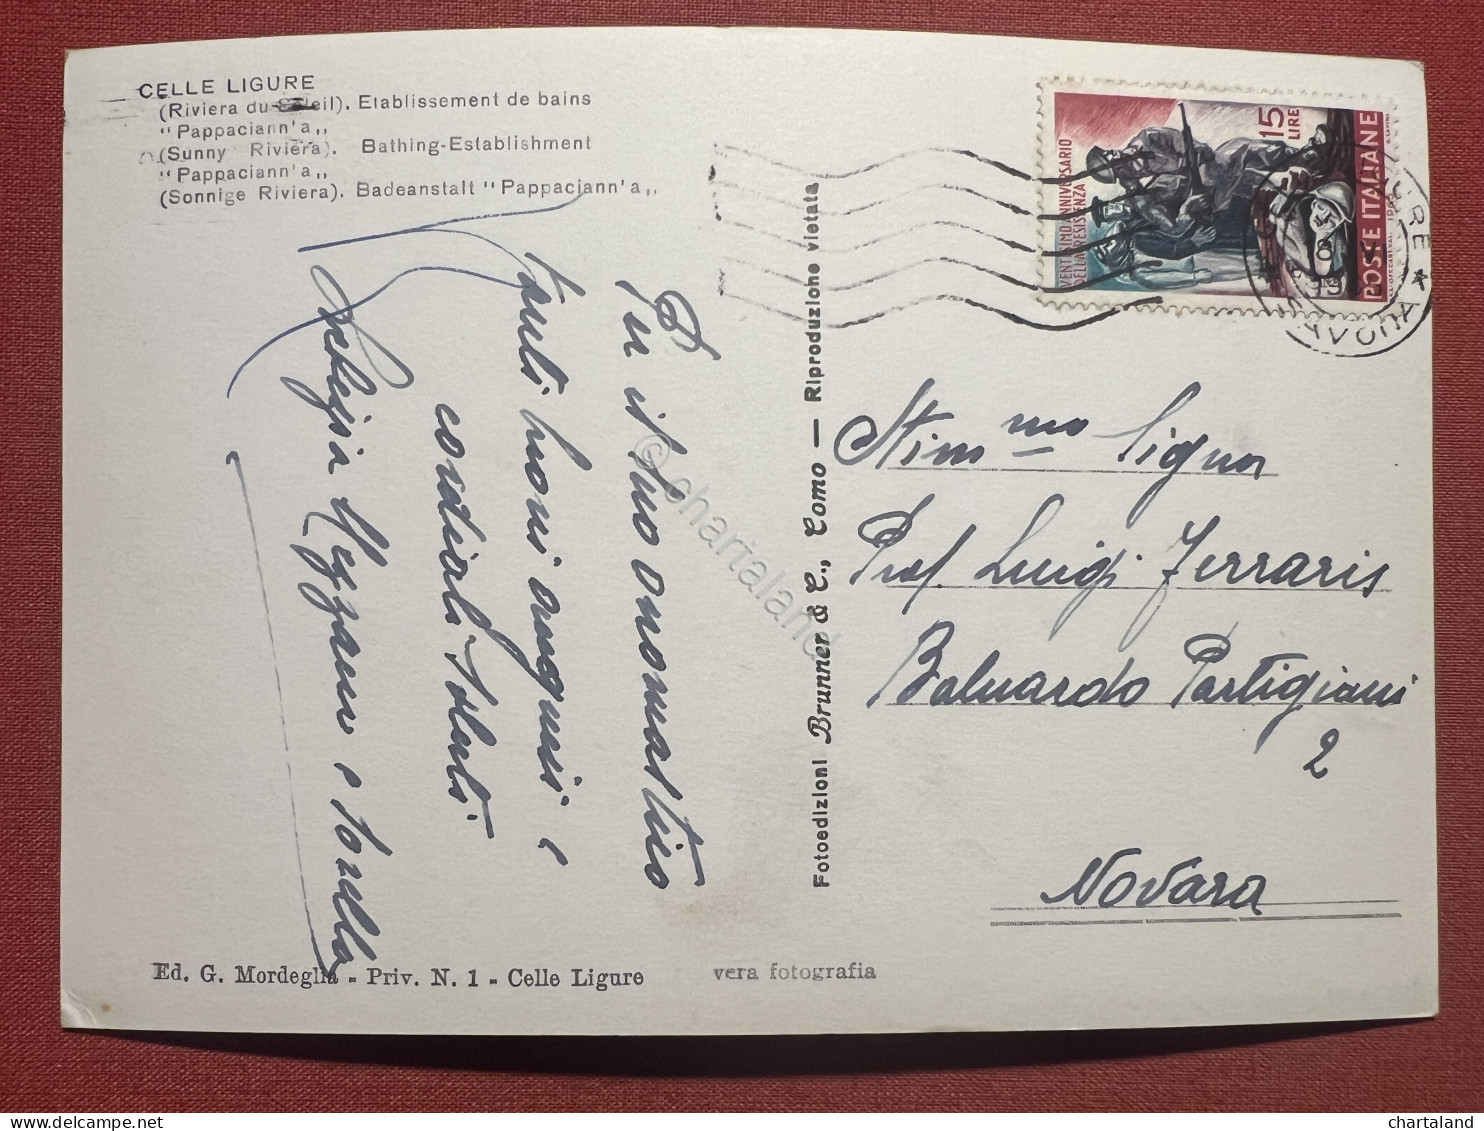 CELLE LIGURE
(Riviera du Soleil). Etablissement de bains
"Pappaciann'a„
(Sunny Riviera). Bathing-Establishment
"Pappaciann'a„
(Sonnige Riviera). Badeanstalt "Pappaciann'a„
Per il Suo onomastico
tanti buoni auguri e
cordiali saluti
Mezzano e Sorella
Ed. G. Mordeglia - Priv. N. 1 - Celle Ligure
vera fotografia
Fotoedizioni Brunner & C., Como — Riproduzione vietata
VENTESIMO ANNIVERSARIO
DELLA RESISTENZA
15 LIRE
POSTE ITALIANE
LIGURE * SAVONA *
Stim mo Signor
Prof. Luigi Ferraris
Baluardo Partigiani
2
Novara
© chartaland
chartaland
delcampe.net